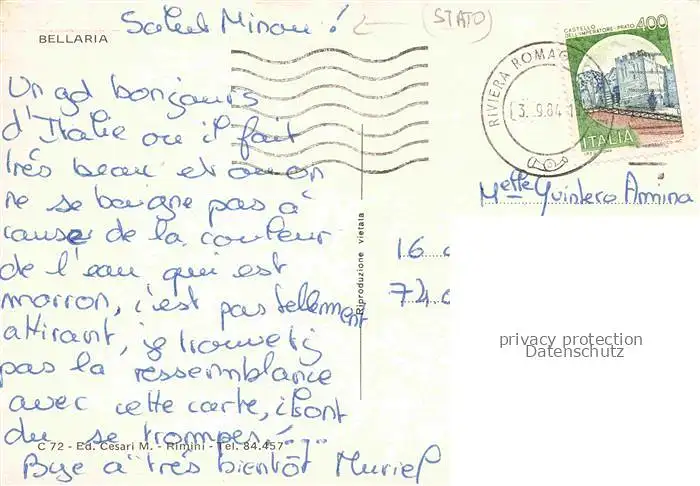 Salut Minou !
(STATO)
BELLARIA
CASTELLO
DELL'IMPERATORE - PRATO 400
ITALIA
RIVIERA ROMAG
3. 9.84
Un gd bonjours
d'Italie ou il fait
très beau et ou on
ne se baigne pas à
cause de la couleur
de l'eau qui est
marron, c'est pas tellement
attirant, je trouve
pas la ressemblance
avec cette carte, ils ont
du se trompés !....
Bye à très bientôt Muriel
Melle Quintero Amina
16
74
Riproduzione vietata
privacy protection
Datenschutz
C 72 - Ed. Cesari M. - Rimini - Tel. 84.457